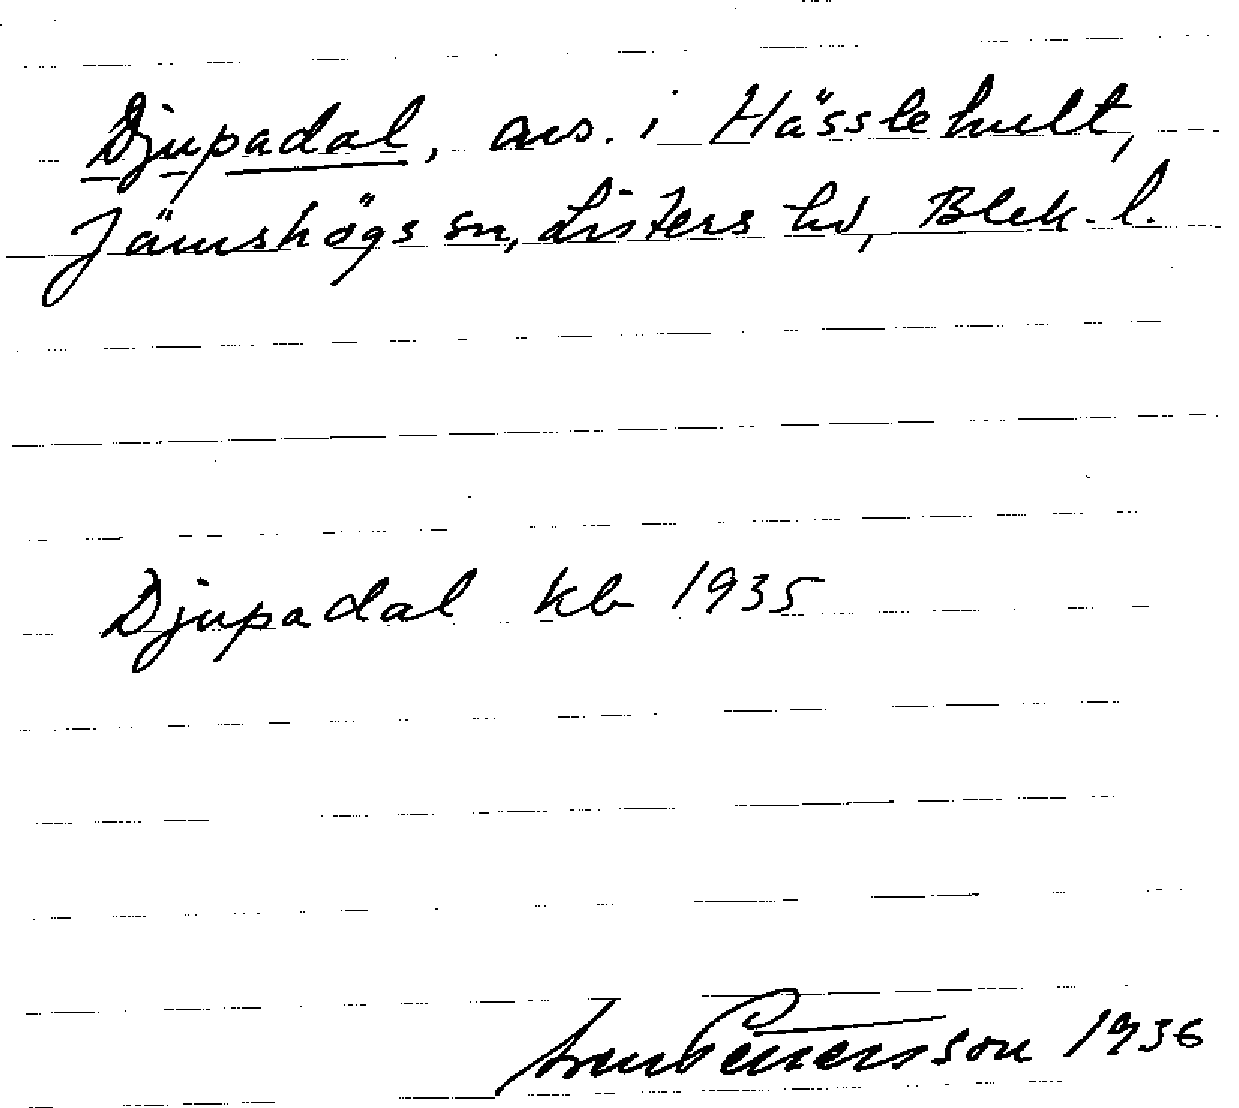 Djupadal, avs. i Hässlehult,
Jämshögs sn, Listers hd, Blek. l.
Djupadal kb 1935
Pettersson 1936